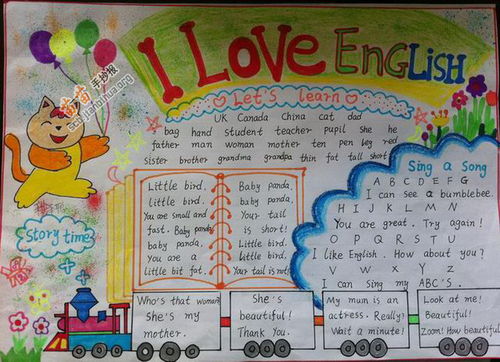 I LOVE ENGLISH
Let's learn
UK Canada China cat dad
bag hand student teacher pupil she he
father man woman mother ten pen leg red
sister brother grandma grandpa thin fat tall short
Little bird,
little bird,
You are small and
fast. Baby panda,
baby panda,
You are a
little bit fat.
Baby panda,
baby panda,
Your tail
is short!
Little bird.
Little bird.
Your tail is not!
Sing a Song
A B C D E F G
I can see a bumblebee
H I J K L M N
You are great. Try again!
O P Q R S T U
I like English. How about you?
V W X Y Z
I can Sing my ABC's.
Story time
Who's that woman
She's my
mother.
She's
beautiful!
Thank You.
My mum is an
actress. Really?
Wait a minute!
Look at me!
Beautiful!
Zoom! How beautiful
手抄报